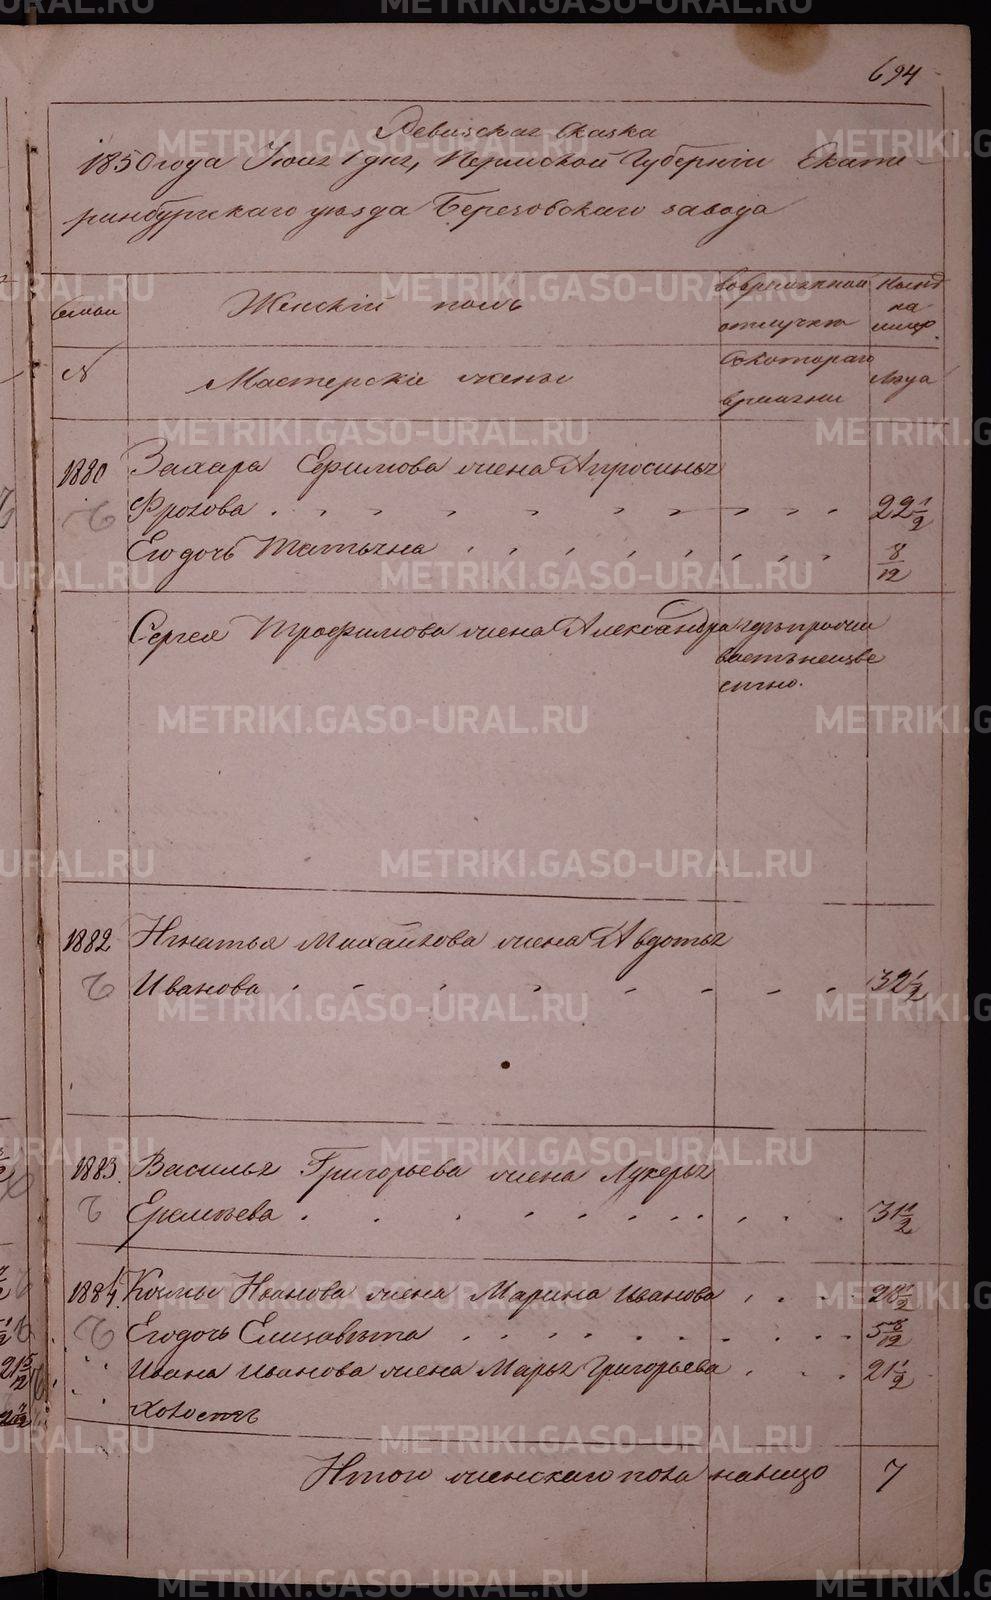 694
Ревизская Сказка
1850 года Июня 1 дня, Пермской Губернии Екате-
ринбургскаго уезда Березовскаго завода
Семьи
Женский полъ
Во временной отлучке
Ныне на лицо
N
Мастерские жены
Съ котораго времени
Лета
1880 Захара Ефимова жена Апросинья
Фролова 22 1/2
Его дочь Татьяна 8/12
Сергея Трофимова жена Александра где прожи
ваетъ неизве
стно.
1882 Игнатья Михайлова жена Авдотья
Иванова 32 1/2
1883. Василья Григорьева жена Лукерья
Еремеева 31 1/2
1884. Козмы Иванова жена Марина Иванова 28 1/2
Его дочь Елизавета 5 8/12
Ивана Иванова жена Марья Григорьева 21 1/2
Холостъ
Итого женскаго пола налицо 7
METRIKI.GASO-URAL.RU